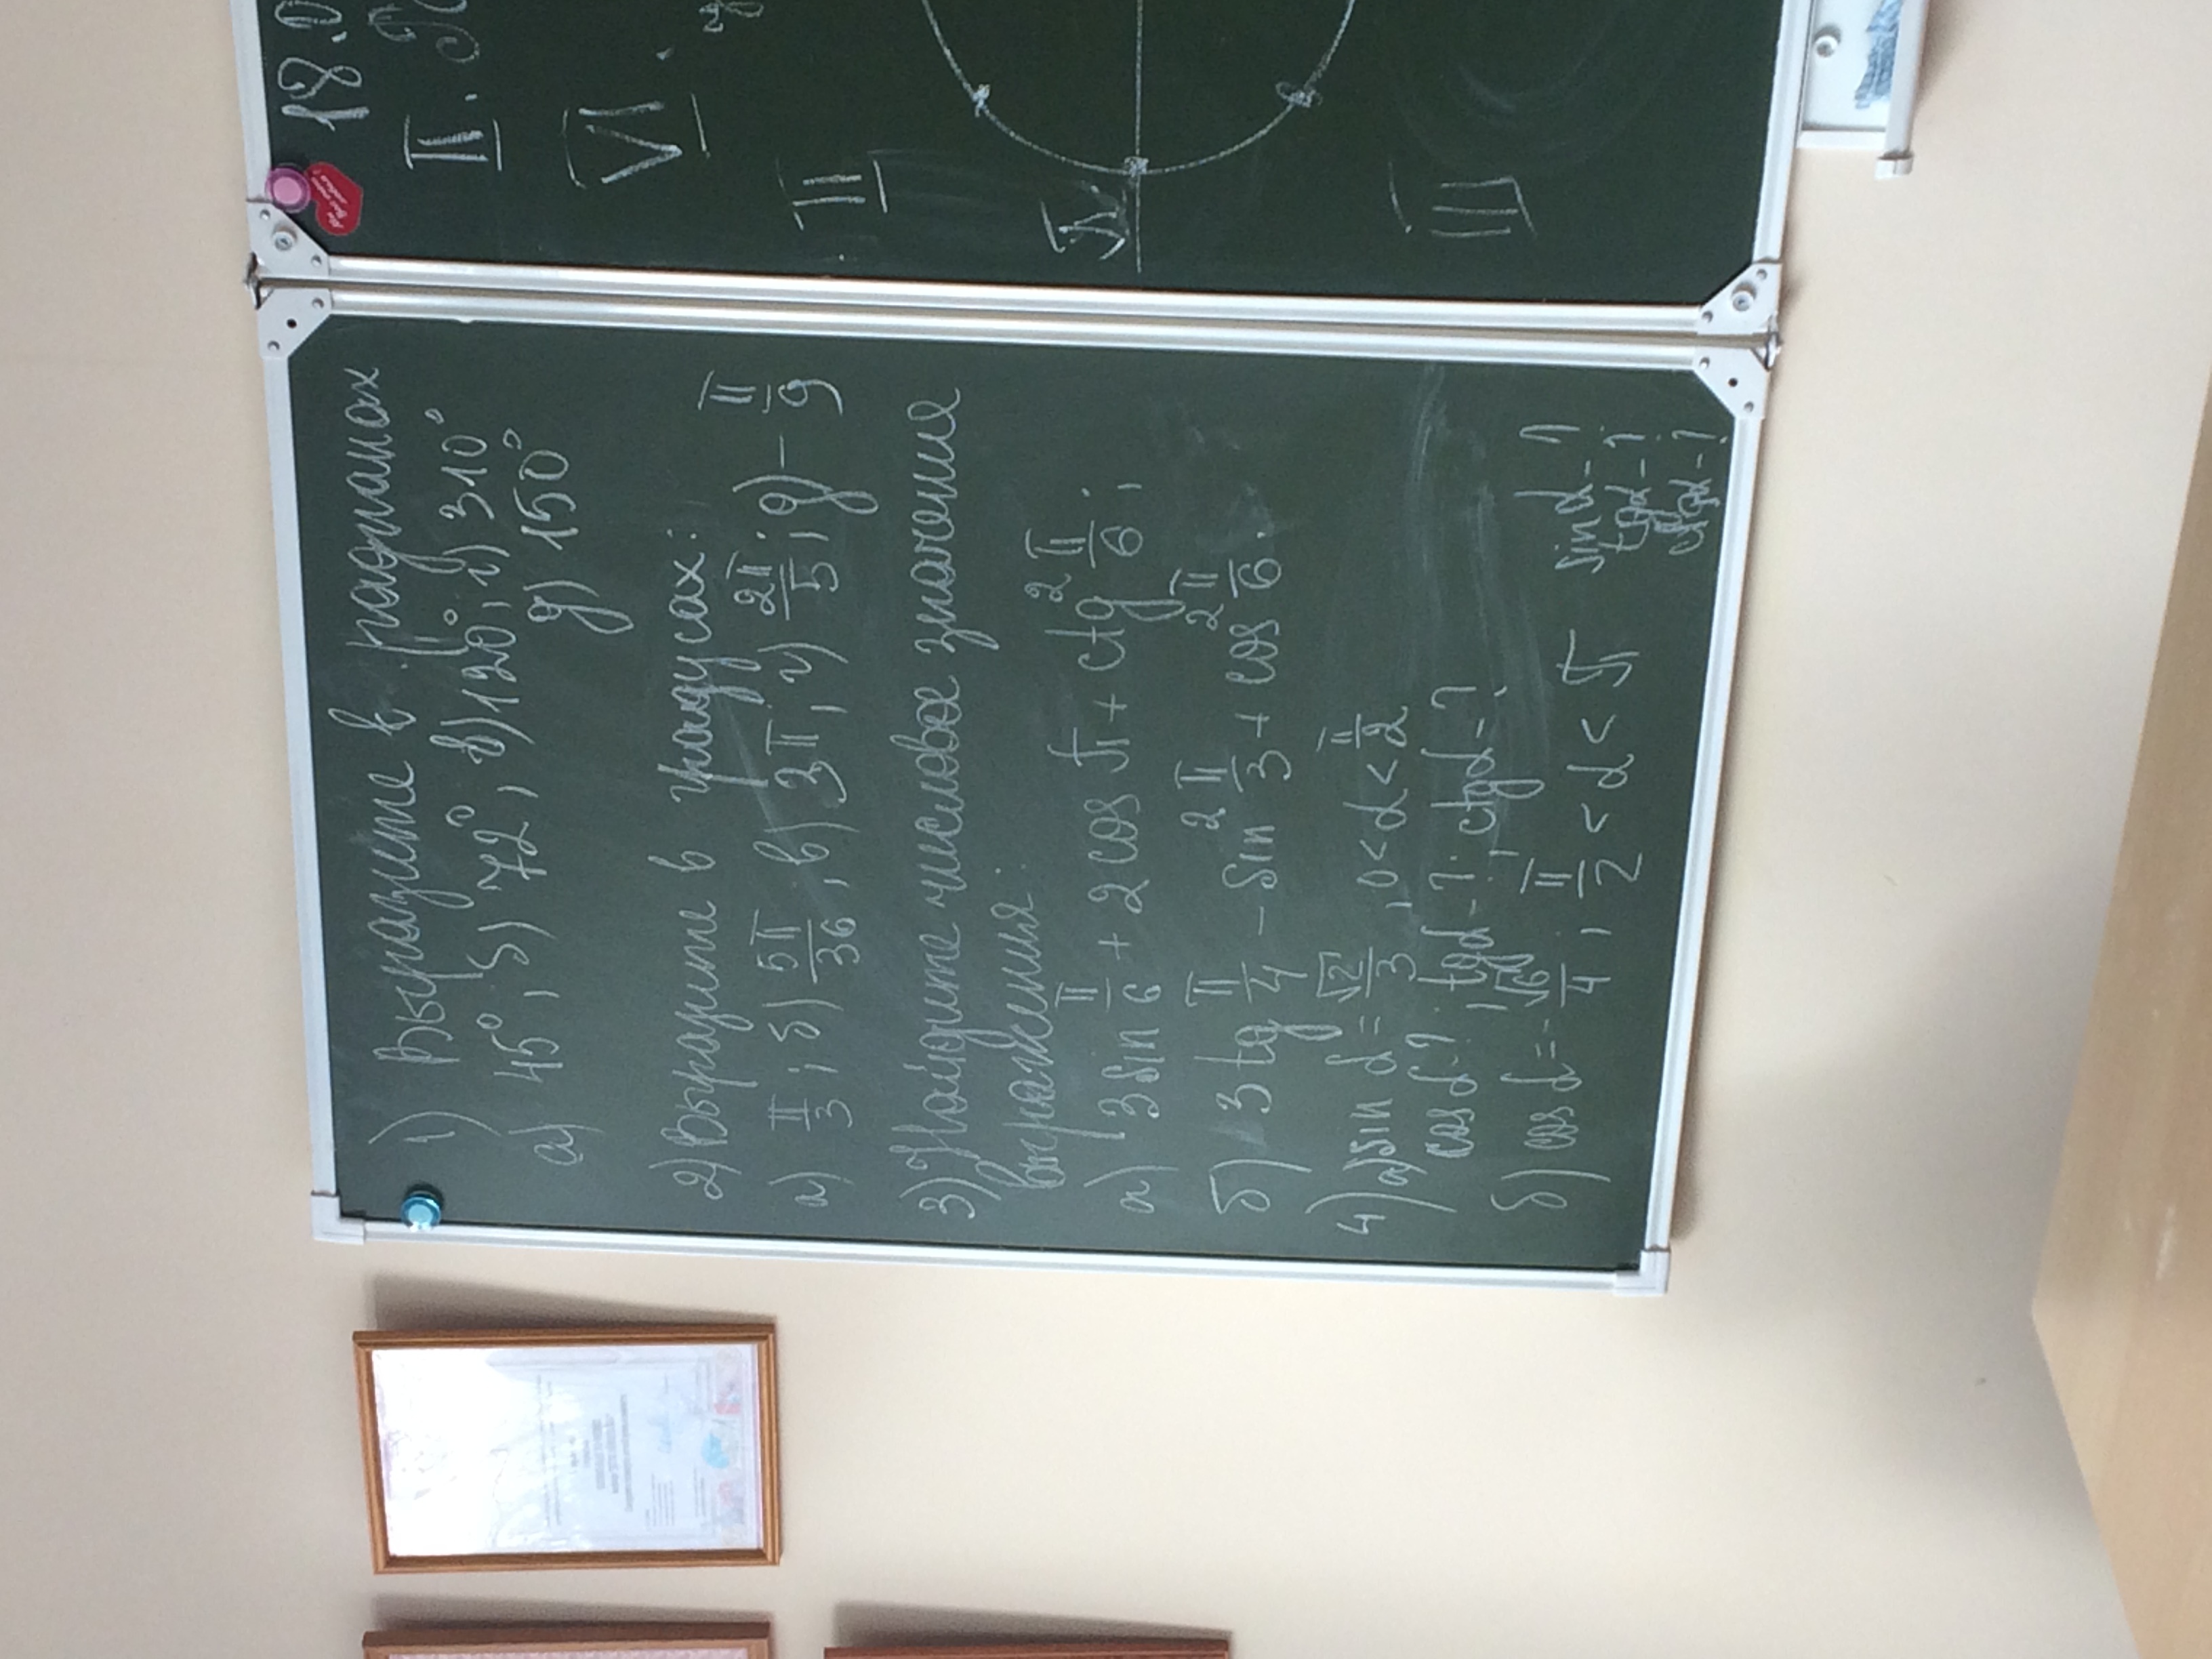 1) Выразите в радианах
а) 45°, б) 72°, в) 120°, г) 310°
д) 150°
2) Выразите в градусах:
а) π/3; б) 5π/36; в) 3π; г) 2π/5; д) -π/9
3) Найдите числовое значение
выражения:
а) 3 sin π/6 + 2 cos π + ctg² π/6;
б) 3 tg π/4 - sin² π/3 + cos² π/6.
4) а) sin α = √2/3, 0 < α < π/2
cos α-?, tg α-?; ctg α-?
б) cos α = -√6/4, π/2 < α < π
sin α-?
tg α-?
ctg α-?
18.0
II.
VI.
II
III